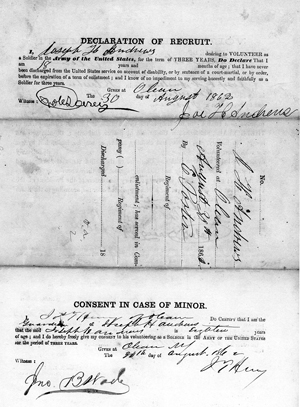 DECLARATION OF RECRUIT.
I, Joseph H Andrews desiring to VOLUNTEER as
a Soldier in the Army of the United States, for the term of THREE YEARS, Do Declare That I
am 18 years and months of age; that I have never
been discharged from the United States service on account of disability, or by sentence of a court-martial, or by order,
before the expiration of a term of enlistment; and I know of no impediment to my serving honestly and faithfully as a
Soldier for three years.
Given at Olean
The 30 day of August 1862
Witness:
Jos H Andrews
No.
Andrews
Volunteered at Olean
August 186
By E Porter
Regiment of
enlistment; has served in Com-
pany ( ) Regiment of
Discharged 18
CONSENT IN CASE OF MINOR.
I, Do CERTIFY That I am the
Guardian of Joseph H Andrews
that the said Joseph H Andrews is Eighteen years
of age; and I do hereby freely give my consent to his volunteering as a SOLDIER in the ARMY OF THE UNITED STATES
for the period of THREE YEARS.
Given at Olean NY
the day of August
Witness:
Jno. B Wade